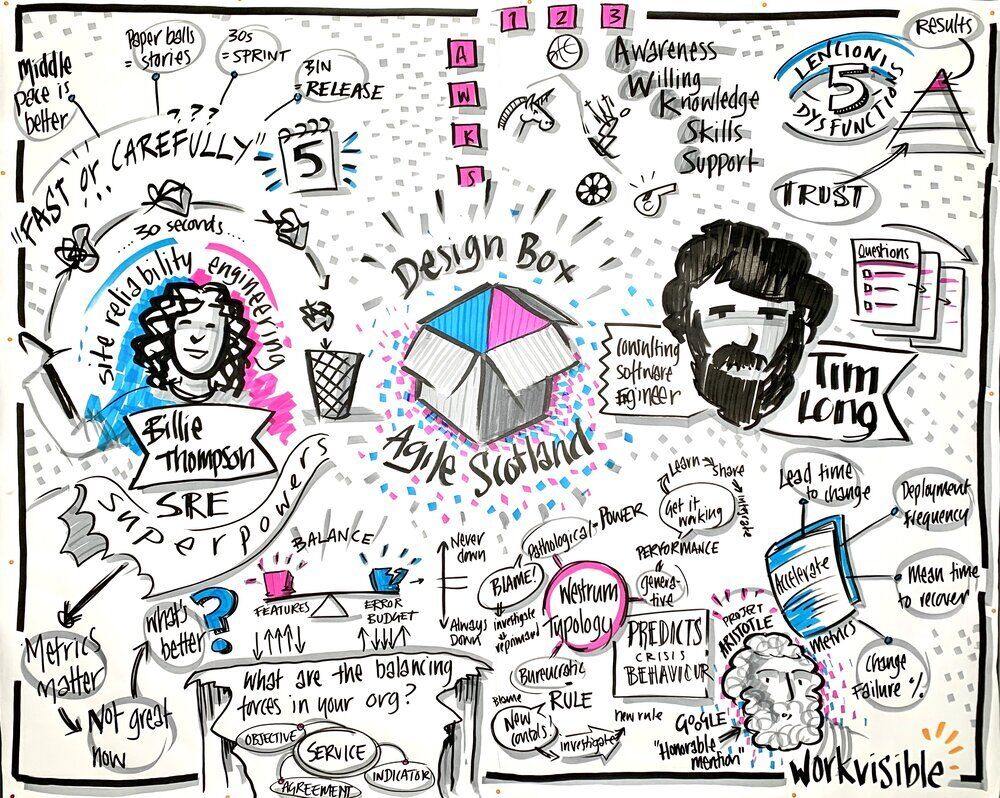 Middle
pace is
better
Paper balls
= stories
30s
= SPRINT
3IN
= RELEASE
???
"FAST or CAREFULLY"
5
30 seconds
site reliability engineering
Billie
Thompson
SRE
Superpowers
1 2 3
A
W
K
S
Awareness
Willing
Knowledge
Skills
Support
LENCIONIS
5
DYSFUNCTIONS
RESULTS
TRUST
Design Box
Agile Scotland
Consulting
software
Engineer
Questions
Tim
Long
Metrics
matter
Not great
now
what's
better
?
BALANCE
FEATURES
ERROR
BUDGET
Never
down
Always
Down
What are the balancing
forces in your org?
OBJECTIVE
SERVICE
INDICATOR
AGREEMENT
Westrum
Typology
Pathological - POWER
BLAME!
investigate
Bureaucratic
RULE
Blame
New
controls
investigate
new rule
generative
PERFORMANCE
Get it
working
Learn
share
integrate
PREDICTS
CRISIS
BEHAVIOUR
PROJECT
ARISTOTLE
GOOGLE
"Honorable
mention"
Accelerate
METRICS
Lead time
to change
Deployment
frequency
Mean time
to recover
Change
Failure %
workvisible